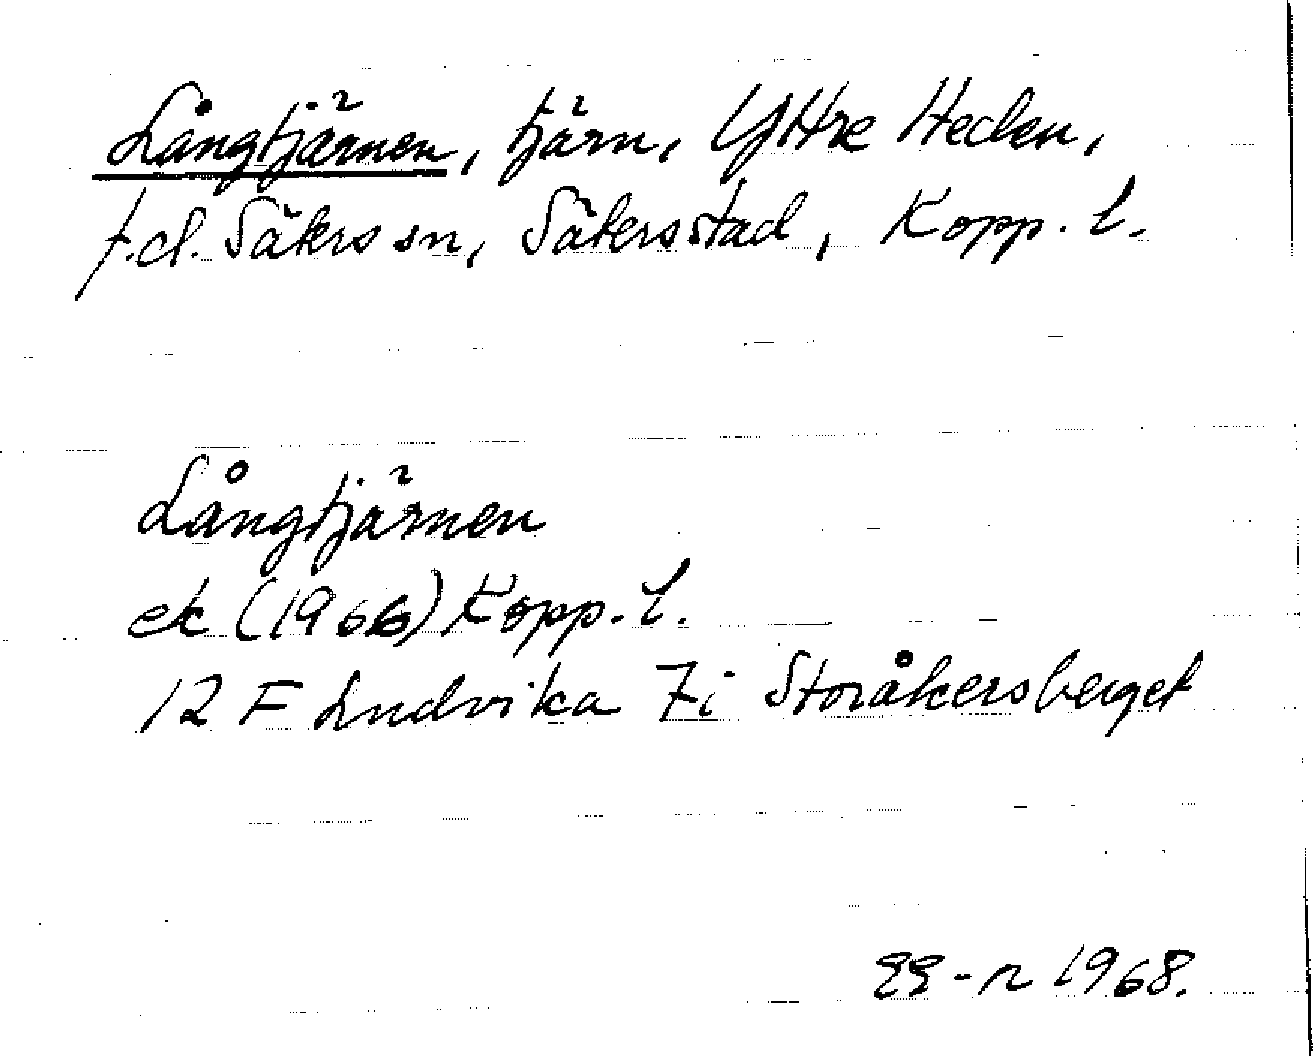 Långtjärnen, tjärn, Yttre Heden,
f.d. Säters sn, Säters stad, Kopp. l.
Långtjärnen
ek (1966) Kopp. l.
12 F Ludvika 7i Storåkersberget
1968.